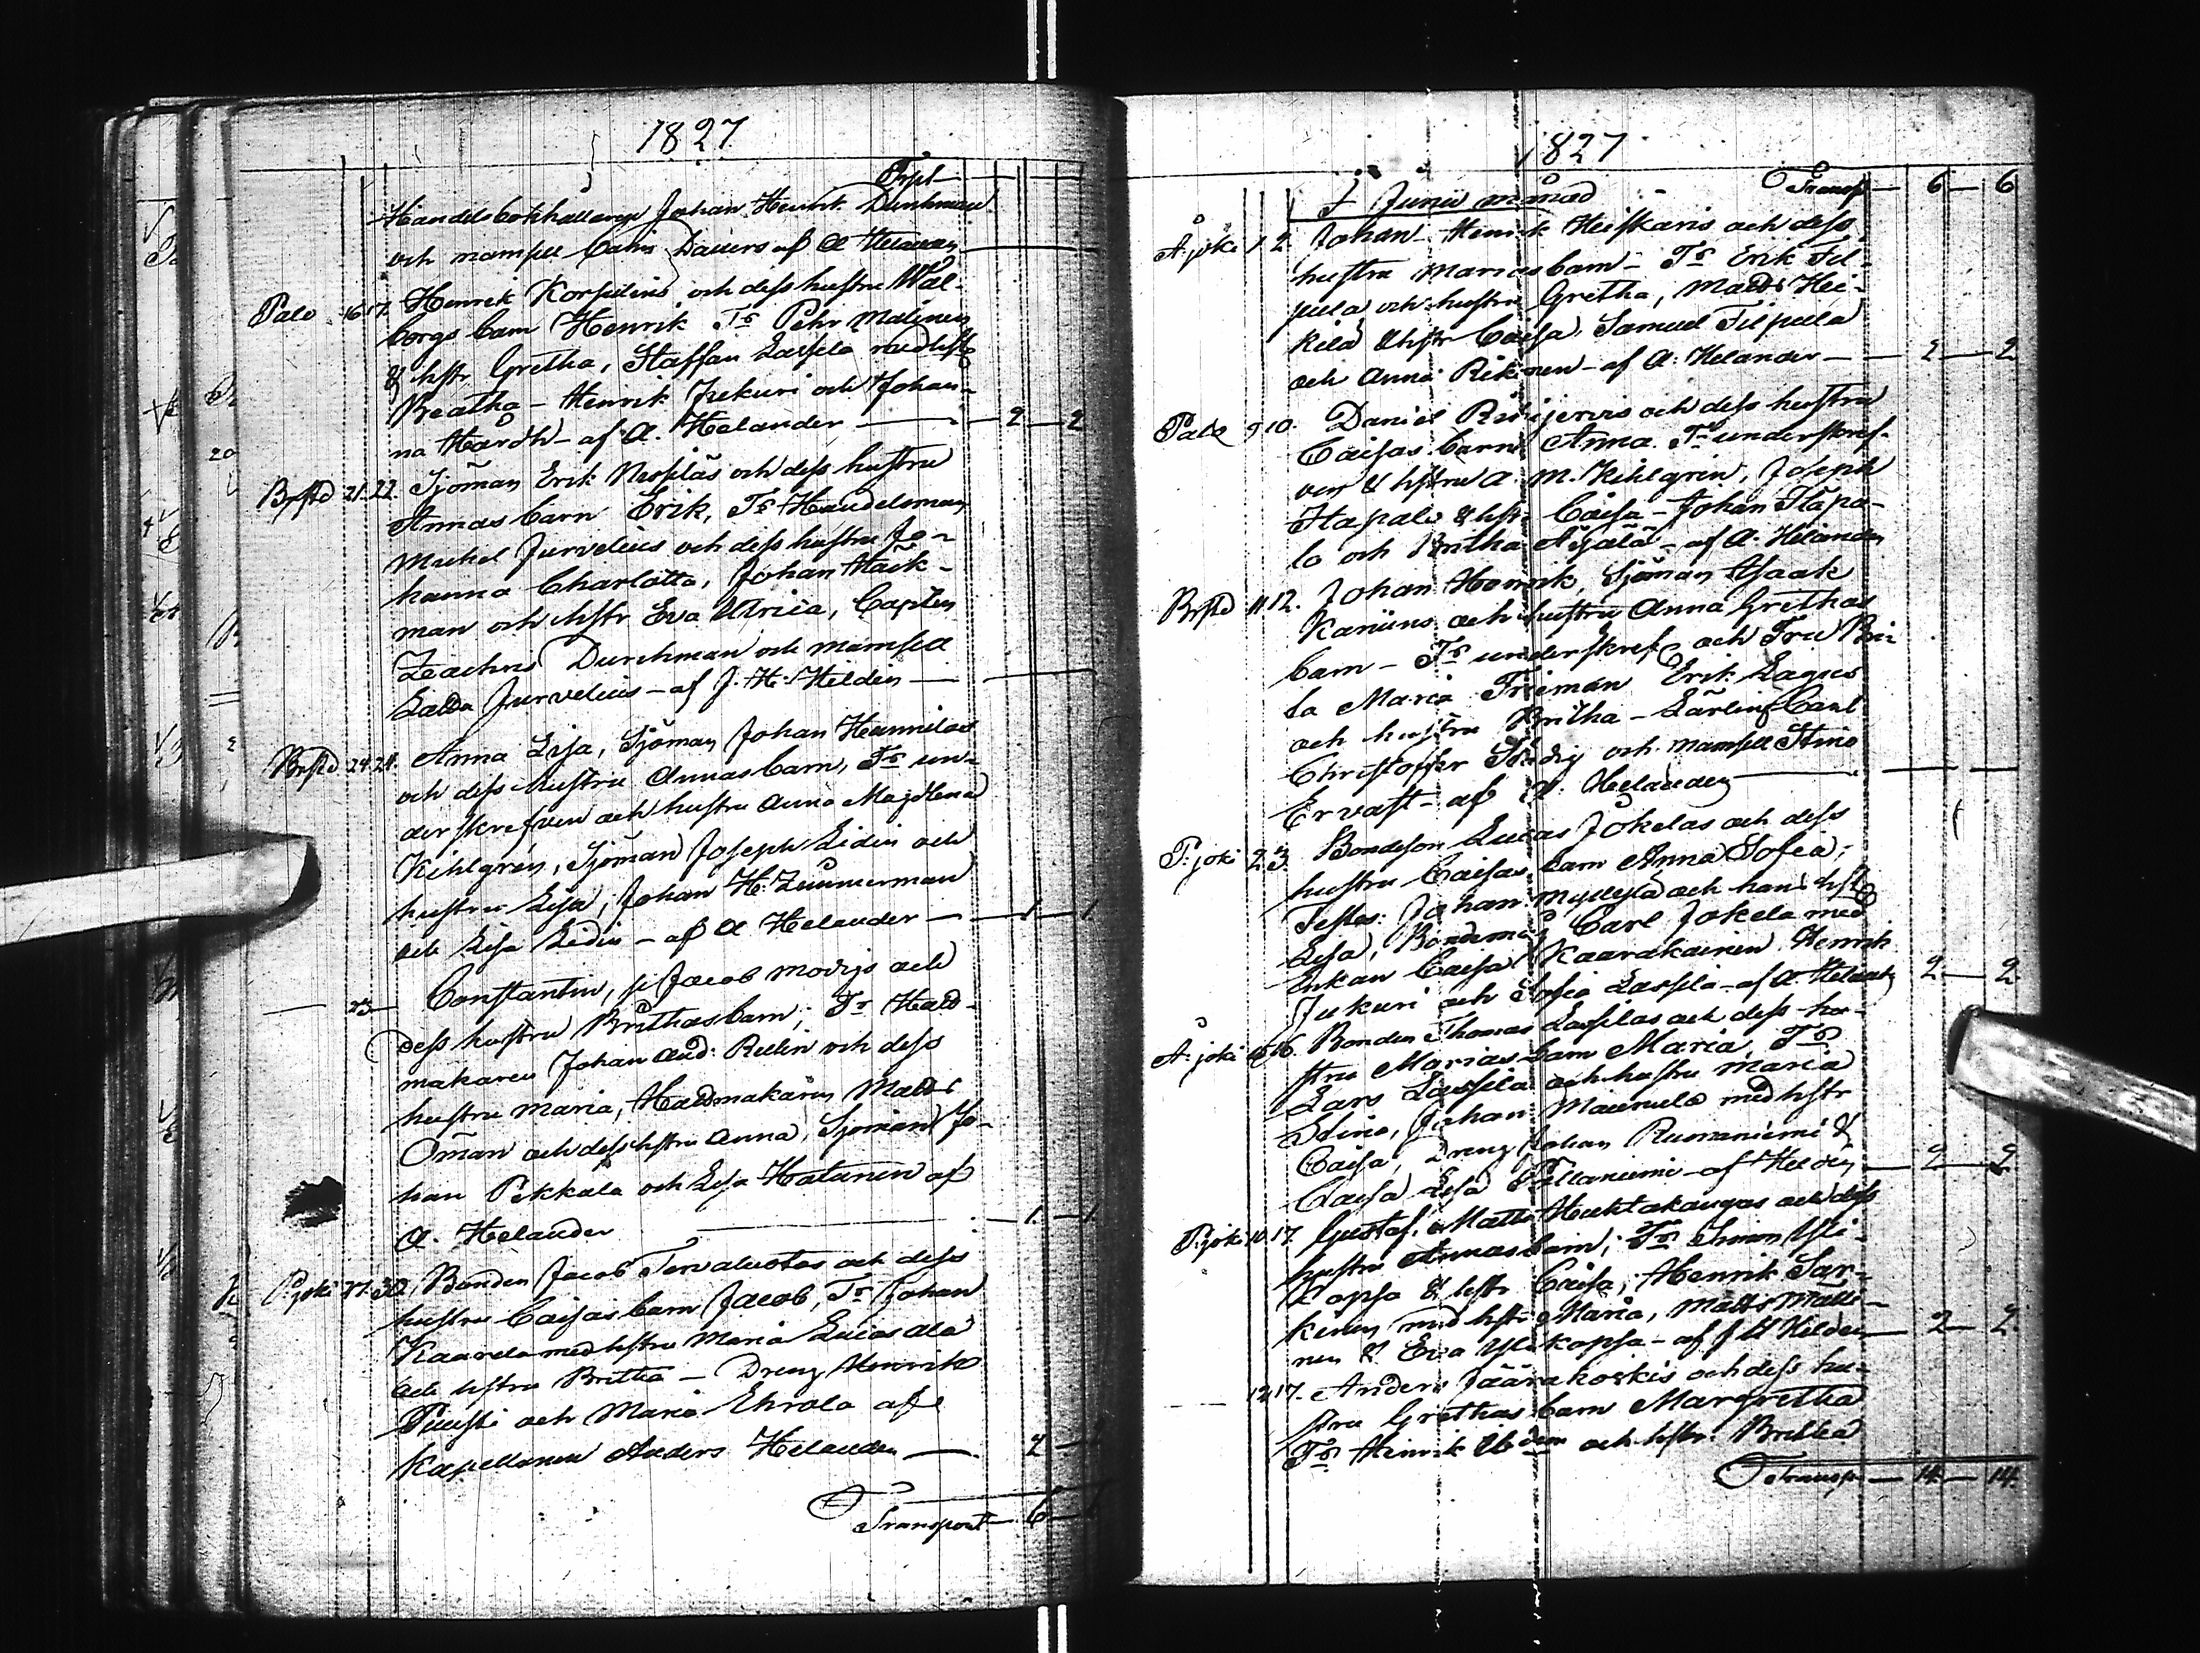 1827
Trspt
Handelsbokhållaren Johan Henrik Durchman
och mamsell Carin Dauers af A Helander
Palo 16 17. Henrik Korpilius och dess hustru Wal-
borgs barn Henrik Tr Pehr Malinen
& hstr Gretha, Staffan Lassila med hst
Beatha - Henrik Jukuri och Johan-
na Hårdh - af A. Helander — 2 — 2
Brstd 21. 22. Sjöman Erik Nissiläs och dess hustru
Annas barn Erik, Tr Handelsman
Michel Jurvelius och dess hustru Jo-
hanna Charlotta, Johan Hack-
man och hstr Eva Ulrica, Capten
Zachris Durchman och mamsell
Jurvelius - af J. H. Heldén —
Brstd 24. 24. Anna Lisa, Sjöman Johan Hannilas
och dess hustru Annas barn, Tr un-
derskrefven och hustru Anna Magdlena
Kihlgrén, Sjöman Joseph Lidin och
hustru Lisa; Johan H: Zimmerman
och Lisa Lidin - af A Helander — 1 — 1
— 23 — Constantin, Jacob och
dess hustru Brithas barn; Tr Hatt-
makaren Johan And: Relin och dess
hustru Maria, Hattmakaren Matts
Öman och dess hstru Anna, Sjöman Jo-
han Pekkala och Lisa Hatanen af
A. Helander — 1. — 1
P. joki 27. 30. Bonden Jacob Tervaluotos och dess
hustru Caisas barn Jacob, Tr Johan
Kaarela med hstru Maria Lucas Ala
och hstru Britha - Dreng Henrik
och Maria Ehrola af
Kapellanen Anders Helander — 2 —
Transport — 6 —
1827
I Junii månad Transp — 6 — 6
A. joki 1 2. Johan Henrik Heiskaris och dess
hustru Marias barn - Tr Erik Fil-
pula och hustru Gretha, Matts Hei-
kilä & hstr Caisa, Samuel Filpula
och Anna Rikinen - af A: Helander — 2 — 2
Palo 9 10. Daniel Ristijervis och dess hustru
Caisas barn Anna. Tr underskref-
ven & hstru A. M. Kihlgrén, Joseph
Hapalo & hstr Caisa - Johan Hapa-
lo och Britha - af A. Helander
Brstd 11 12. Johan Henrik, Sjöman Isaak
och hustru Anna Grethas
barn - Tr underskref och Fru Bri-
ta Maria Frieman Erik
och hustru Britha - Lärling Carl
Christoffer och mamsell Stina
Ervast - af A. Helander
P. joki 2 3. Bondeson Lucas Jokelas och dess
hustru Caisas barn Anna Sofia;
Testes: Johan Myllylä och hans hstr
Lisa, Bondeman Carl Jokela med
Enkan Caisa Kaarakainen Henrik
Jukuri och Sofia Lassila - af A. Helander 2 — 2
A. joki 16. Bonden Thomas Lassilas och dess hu-
stru Marias barn Maria, Tr
Lars Lassila och hustru Maria
Stina, Johan Maunula med hstr
Caisa, Dreng Johan Rumaniemi &
Caisa Lisa - af Heldén — 2 — 2
P. joki 10. 17. Gustaf, Matts Huhtakangas och dess
hustru Annas barn; Tr Simon Yli-
kopsa & hstr Caisa; Henrik Sar-
kinen med hstr Maria, Matts Matti-
nen & Eva Ylikopsa - af J H Heldén — 2 — 2
17. Anders Jäärakoskis och dess hu-
stru Grethas barn Margretha
Tr Henrik och hstr: Britha
Transp — 14. — 14.